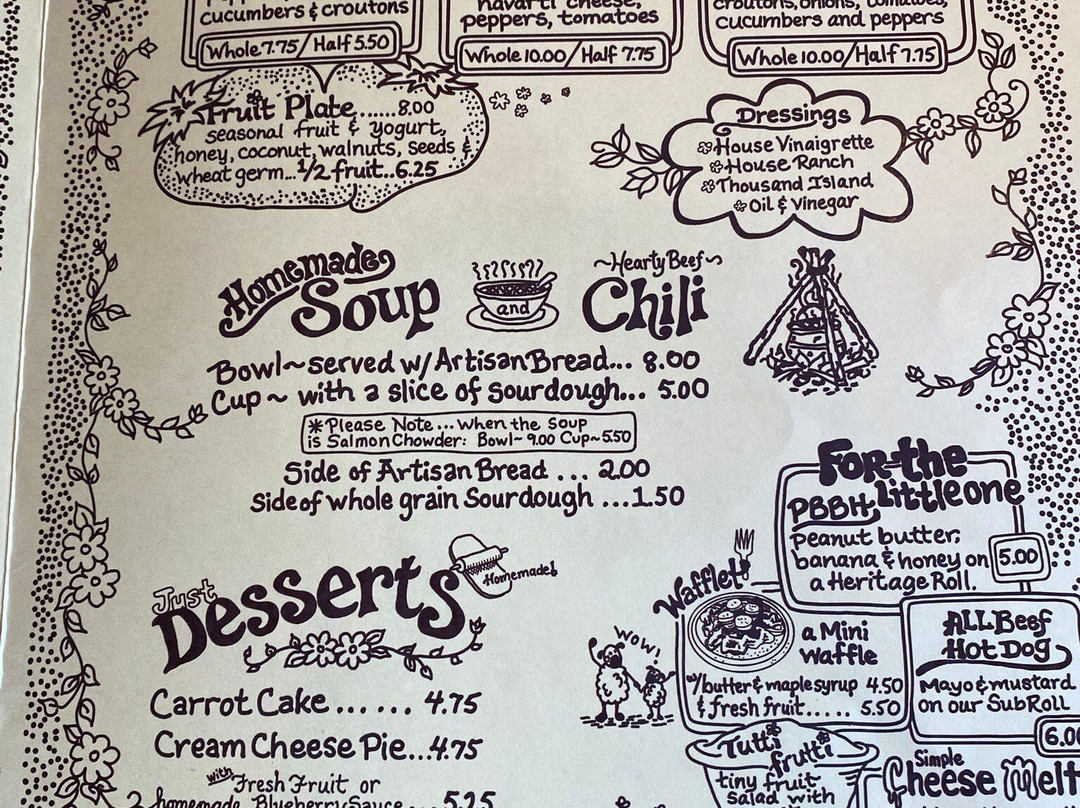 cucumbers & croutons
Whole 7.75 / Half 5.50
havarti cheese,
peppers, tomatoes
Whole 10.00 / Half 7.75
croutons, onions, tomatoes,
cucumbers and peppers
Whole 10.00 / Half 7.75
Fruit Plate......8.00
seasonal fruit & yogurt,
honey, coconut, walnuts, seeds &
wheat germ...1/2 fruit..6.25
Dressings
House Vinaigrette
House Ranch
Thousand Island
Oil & Vinegar
Homemade
Soup
and
~Hearty Beef~
Chili
Bowl~served w/ Artisan Bread... 8.00
Cup~ with a slice of sourdough... 5.00
*Please Note... when the soup
is Salmon Chowder: Bowl~ 9.00 Cup~5.50
Side of Artisan Bread ... 2.00
Side of whole grain Sourdough ...1.50
Just
Desserts
Homemade!
Carrot Cake ...... 4.75
Cream Cheese Pie...4.75
with Fresh Fruit or
homemade Blueberry Sauce .... 5.25
For the
little one
PBBH
peanut butter,
banana & honey on
a Heritage Roll.
5.00
Wafflet
WOW!
a Mini
Waffle
w/butter & maple syrup 4.50
& fresh fruit..... 5.50
ALL Beef
Hot Dog
Mayo & mustard
on our Sub Roll
6.00
Tutti
frutti
tiny fruit
salad with
Simple
Cheese Melt